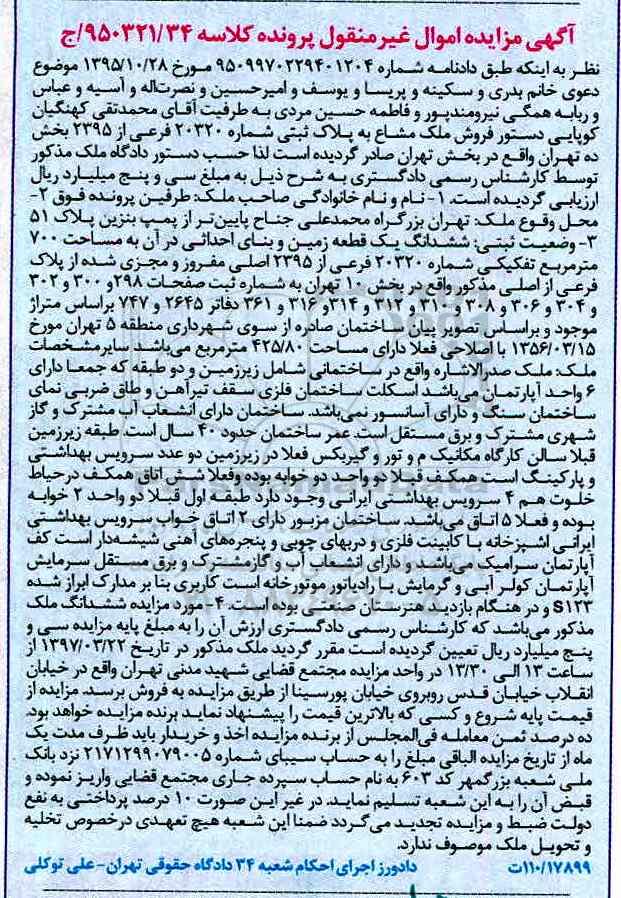 آگهی مزایده اموال غیرمنقول پرونده کلاسه ۹۵۰۳۲۱/۳۴/ج
نظر به اینکه طبق دادنامه شماره ۹۵۰۹۹۷۰۲۲۹۴۰۱۲۰۴ مورخ ۱۳۹۵/۱۰/۲۸ موضوع
دعوی خانم بدری و سکینه و پریسا و یوسف و امیرحسین و نصرت‌اله و آسیه و عباس
و ربابه همگی نیرومندپور و فاطمه حسین مردی به طرفیت آقای محمدتقی کهنگیان
کوپایی دستور فروش ملک مشاع به پلاک ثبتی شماره ۲۰۳۲۰ فرعی از ۲۳۹۵ بخش
ده تهران واقع در بخش تهران صادر گردیده است لذا حسب دستور دادگاه ملک مذکور
توسط کارشناس رسمی دادگستری به شرح ذیل به مبلغ سی و پنج میلیارد ریال
ارزیابی گردیده است. ۱- نام و نام خانوادگی صاحب ملک: طرفین پرونده فوق ۲-
محل وقوع ملک: تهران بزرگراه محمدعلی جناح پایین‌تر از پمپ بنزین پلاک ۵۱
۳- وضعیت ثبتی: ششدانگ یک قطعه زمین و بنای احداثی در آن به مساحت ۷۰۰
مترمربع تفکیکی شماره ۲۰۳۲۰ فرعی از ۲۳۹۵ اصلی مفروز و مجزی شده از پلاک
فرعی از اصلی مذکور واقع در بخش ۱۰ تهران به شماره ثبت صفحات ۲۹۸و ۳۰۰ و ۳۰۲
و ۳۰۴ و ۳۰۶ و ۳۰۸ و ۳۱۰ و ۳۱۲ و ۳۱۴و ۳۱۶ و ۳۶۱ دفاتر ۲۶۴۵ و ۷۴۷ براساس متراژ
موجود و براساس تصویر پیان ساختمان صادره از سوی شهرداری منطقه ۵ تهران مورخ
۱۳۵۶/۰۳/۱۵ با اصلاحی فعلا دارای مساحت ۴۲۵/۸۰ مترمربع می‌باشد سایرمشخصات
ملک: ملک صدرالاشاره واقع در ساختمانی شامل زیرزمین و دو طبقه که جمعا دارای
۶ واحد آپارتمان می‌باشد اسکلت ساختمان فلزی سقف تیرآهن و طاق ضربی نمای
ساختمان سنگ و دارای آسانسور نمی‌باشد. ساختمان دارای انشعاب آب مشترک و گاز
شهری مشترک و برق مستقل است. عمر ساختمان حدود ۴۰ سال است. طبقه زیرزمین
قبلا سالن کارگاه مکانیک م و تور و گیربکس فعلا در زیرزمین دو عدد سرویس بهداشتی
و پارکینگ است همکف قبلا دو واحد دو خوابه بوده وفعلا شش اتاق همکف درحیاط
خلوت هم ۴ سرویس بهداشتی ایرانی وجود دارد طبقه اول قبلا دو واحد ۲ خوابه
بوده و فعلا ۵ اتاق می‌باشد. ساختمان مزبور دارای ۲ اتاق خواب سرویس بهداشتی
ایرانی اشپزخانه با کابینت فلزی و دربهای چوبی و پنجره‌های آهنی شیشه‌دار است کف
آپارتمان سرامیک می‌باشد و دارای انشعاب آب و گازمشترک و برق مستقل سرمایش
آپارتمان کولر آبی و گرمایش با رادیاتور موتورخانه است کاربری بنا بر مدارک ابراز شده
S۱۲۳ و در هنگام بازدید هنرستان صنعتی بوده است. ۴-مورد مزایده ششدانگ ملک
مذکور می‌باشد که کارشناس رسمی دادگستری ارزش آن را به مبلغ پایه مزایده سی و
پنج میلیارد ریال تعیین گردیده است مقرر گردید ملک مذکور در تاریخ ۱۳۹۷/۰۳/۲۲ از
ساعت ۱۳ الی ۱۳/۳۰ در واحد مزایده مجتمع قضایی شهید مدنی تهران واقع در خیابان
انقلاب خیابان قدس روبروی خیابان پورسینا از طریق مزایده به فروش برسد. مزایده از
قیمت پایه شروع و کسی که بالاترین قیمت را پیشنهاد نماید برنده مزایده خواهد بود.
ده درصد ثمن معامله فی‌المجلس از برنده مزایده اخذ و خریدار باید ظرف مدت یک
ماه از تاریخ مزایده الباقی مبلغ را به حساب سیبای شماره ۲۱۷۱۲۹۹۰۷۹۰۰۵ نزد بانک
ملی شعبه بزرگمهر کد ۶۰۳ به نام حساب سپرده جاری مجتمع قضایی واریز نموده و
قبض آن را به این شعبه تسلیم نماید. در غیر این صورت ۱۰ درصد پرداختی به نفع
دولت ضبط و مزایده تجدید می‌گردد ضمنا این شعبه هیچ تعهدی درخصوص تخلیه
و تحویل ملک موصوف ندارد.
۱۱۰/۱۷۸۹۹ت دادورز اجرای احکام شعبه ۳۴ دادگاه حقوقی تهران- علی توکلی